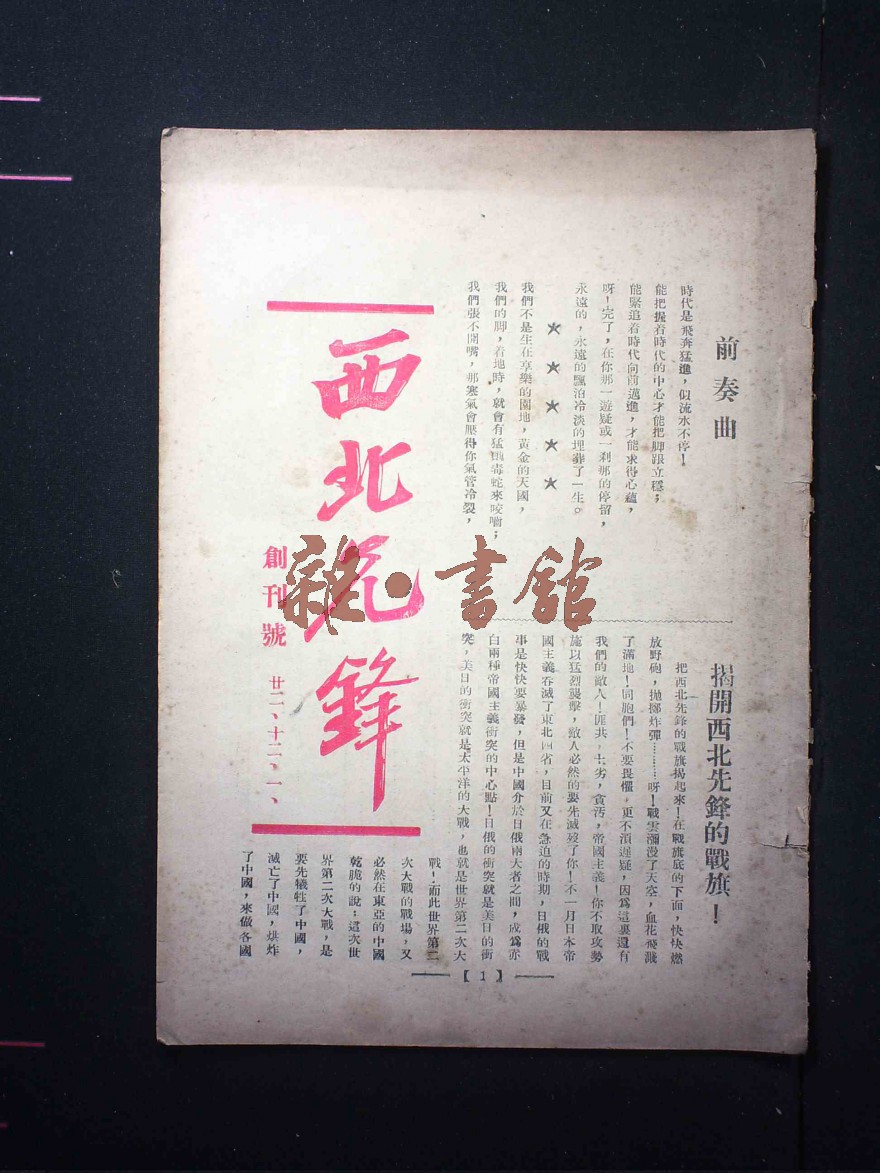 前奏曲
時代是飛奔猛進，似流水不停！
能把握着時代的中心才能把脚跟立穩；
能緊追着時代向前邁進，才能求得心蘊，
呀！完了，在你那一遊疑或一刹那的停留，
永遠的，永遠的飄泊冷淡的埋葬了一生。
★★★★★
我們不是生在享樂的園地，黃金的天國，
我們的脚，着地時，就會有猛 毒蛇來咬嚙；
我們張不開嘴，那寒氣會壓得你氣管冷裂，
揭開西北先鋒的戰旗！
把西北先鋒的戰旗揭起來！在戰旗底的下面，快快燃
放野砲，拋擲炸彈………呀！戰雲瀰漫了天空，血花飛濺
了滿地！同胞們！不要畏懼，更不須遲疑，因爲這裏還有
我們的敵人！匪共，土劣，貪汚，帝國主義！你不取攻勢
施以猛烈襲擊，敵人必然的要先滅殁了你！不一月日本帝
國主義吞滅了東北四省，目前又在急迫的時期，日俄的戰
事是快快要暴發，但是中國介於日俄兩大者之間，成爲赤
白兩種帝國主義衝突的中心點！日俄的衝突就是美日的衝
突，美日的衝突就是太平洋的大戰，也就是世界第二次大
戰！而此世界第二
次大戰的戰場，又
必然在東亞的中國
乾脆的說：這次世
界第二次大戰，是
要先犧牲了中國，
滅亡了中國，烘炸
了中國，來做各國
西北先鋒
創刊號
廿二、十二、一、
【1】
雜·書館